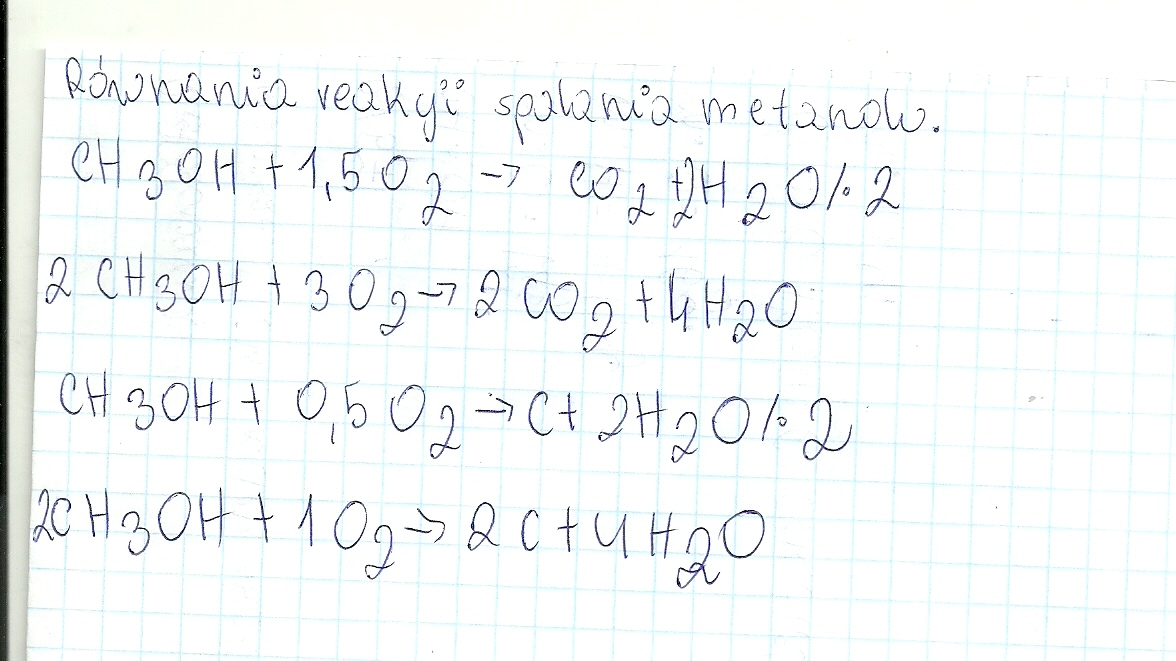 Równania reakcji spalania metanolu.
CH3OH + 1,5O2 → CO2 + 2H2O /· 2
2 CH3OH + 3 O2 → 2 CO2 + 4H2O
CH3OH + 0,5O2 → C + 2H2O /· 2
2CH3OH + 1O2 → 2C + 4H2O